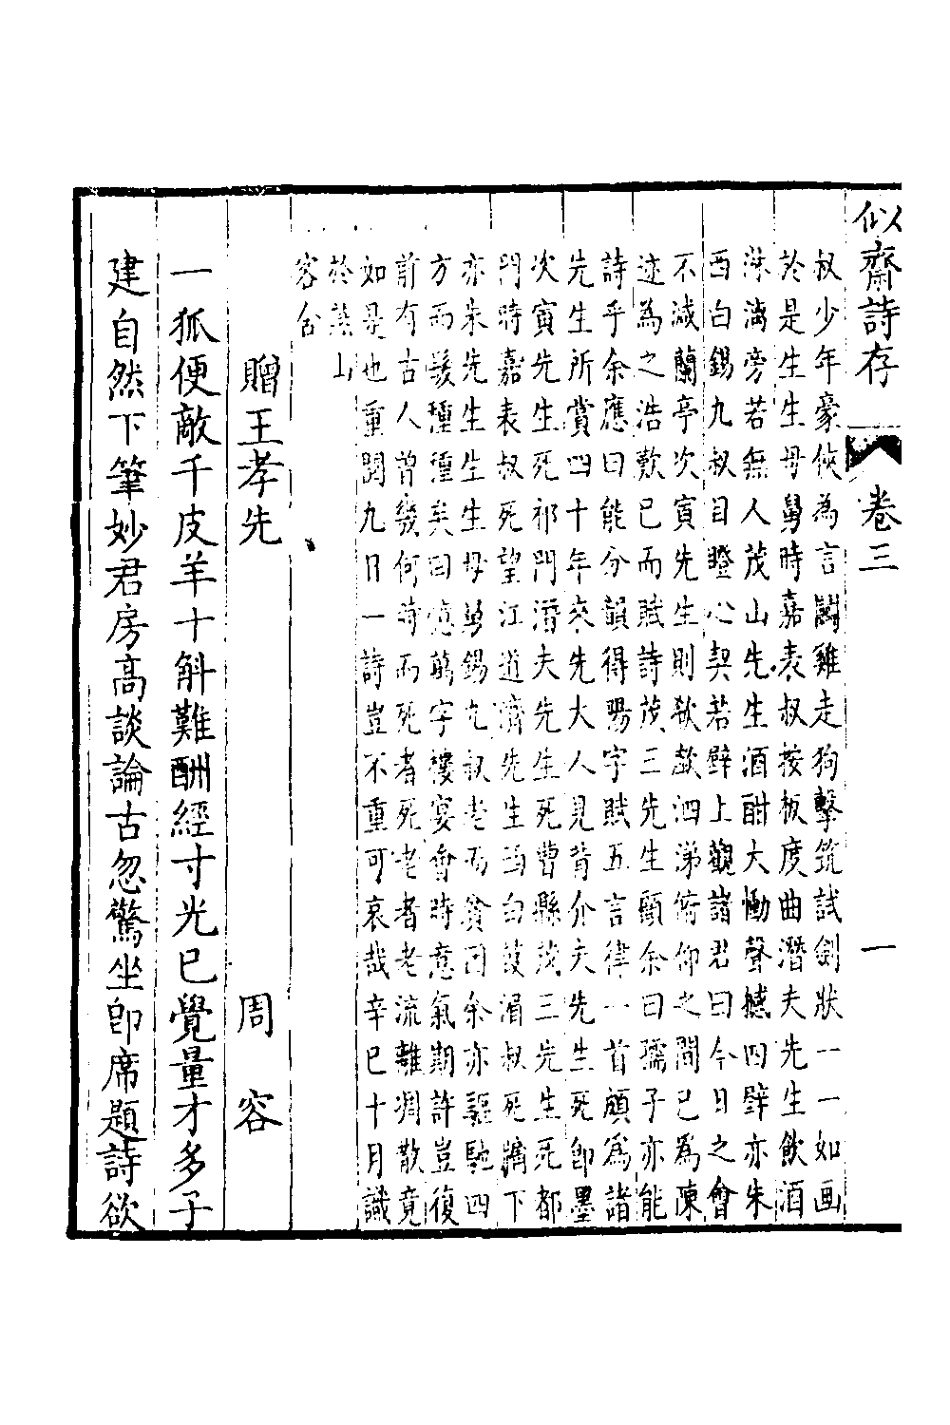 似齋詩存 卷三 一
叔少年豪俠為言鬬雞走狗擊筑試劍狀一一如画
於是生生母舅時嘉表叔按板度曲潛夫先生飲酒
淋漓旁若無人茂山先生酒酣大慟聲撼四壁亦朱
酉白錫九叔目瞪心契若壁上觀諸君曰今日之會
不減蘭亭次寅先生則欷歔泗涕俯仰之間已為陳
迹為之浩歎已而賦詩茂三先生顧余曰孺子亦能
詩乎余應曰能分韻得陽字賦五言律一首頗為諸
先生所賞四十年來先大人見背介夫先生死卽墨
次寅先生死祁門潛夫先生死曹縣茂三先生死都
門時嘉表叔死望江道濟先生酉白葭湄叔死牖下
亦朱先生生生母舅錫九叔老而貧因余亦驅馳四
方而髮種種矣回憶萬字樓宴會時意氣期許豈復
前有古人曾幾何時而死者死老者老流離凋散竟
如是也重閱九日一詩豈不重可哀哉辛巳十月識
於燕山
客舍
贈王孝先 周容
一狐便敵千皮羊十斛難酬經寸光已覺量才多子
建自然下筆妙君房高談論古忽驚坐卽席題詩欲